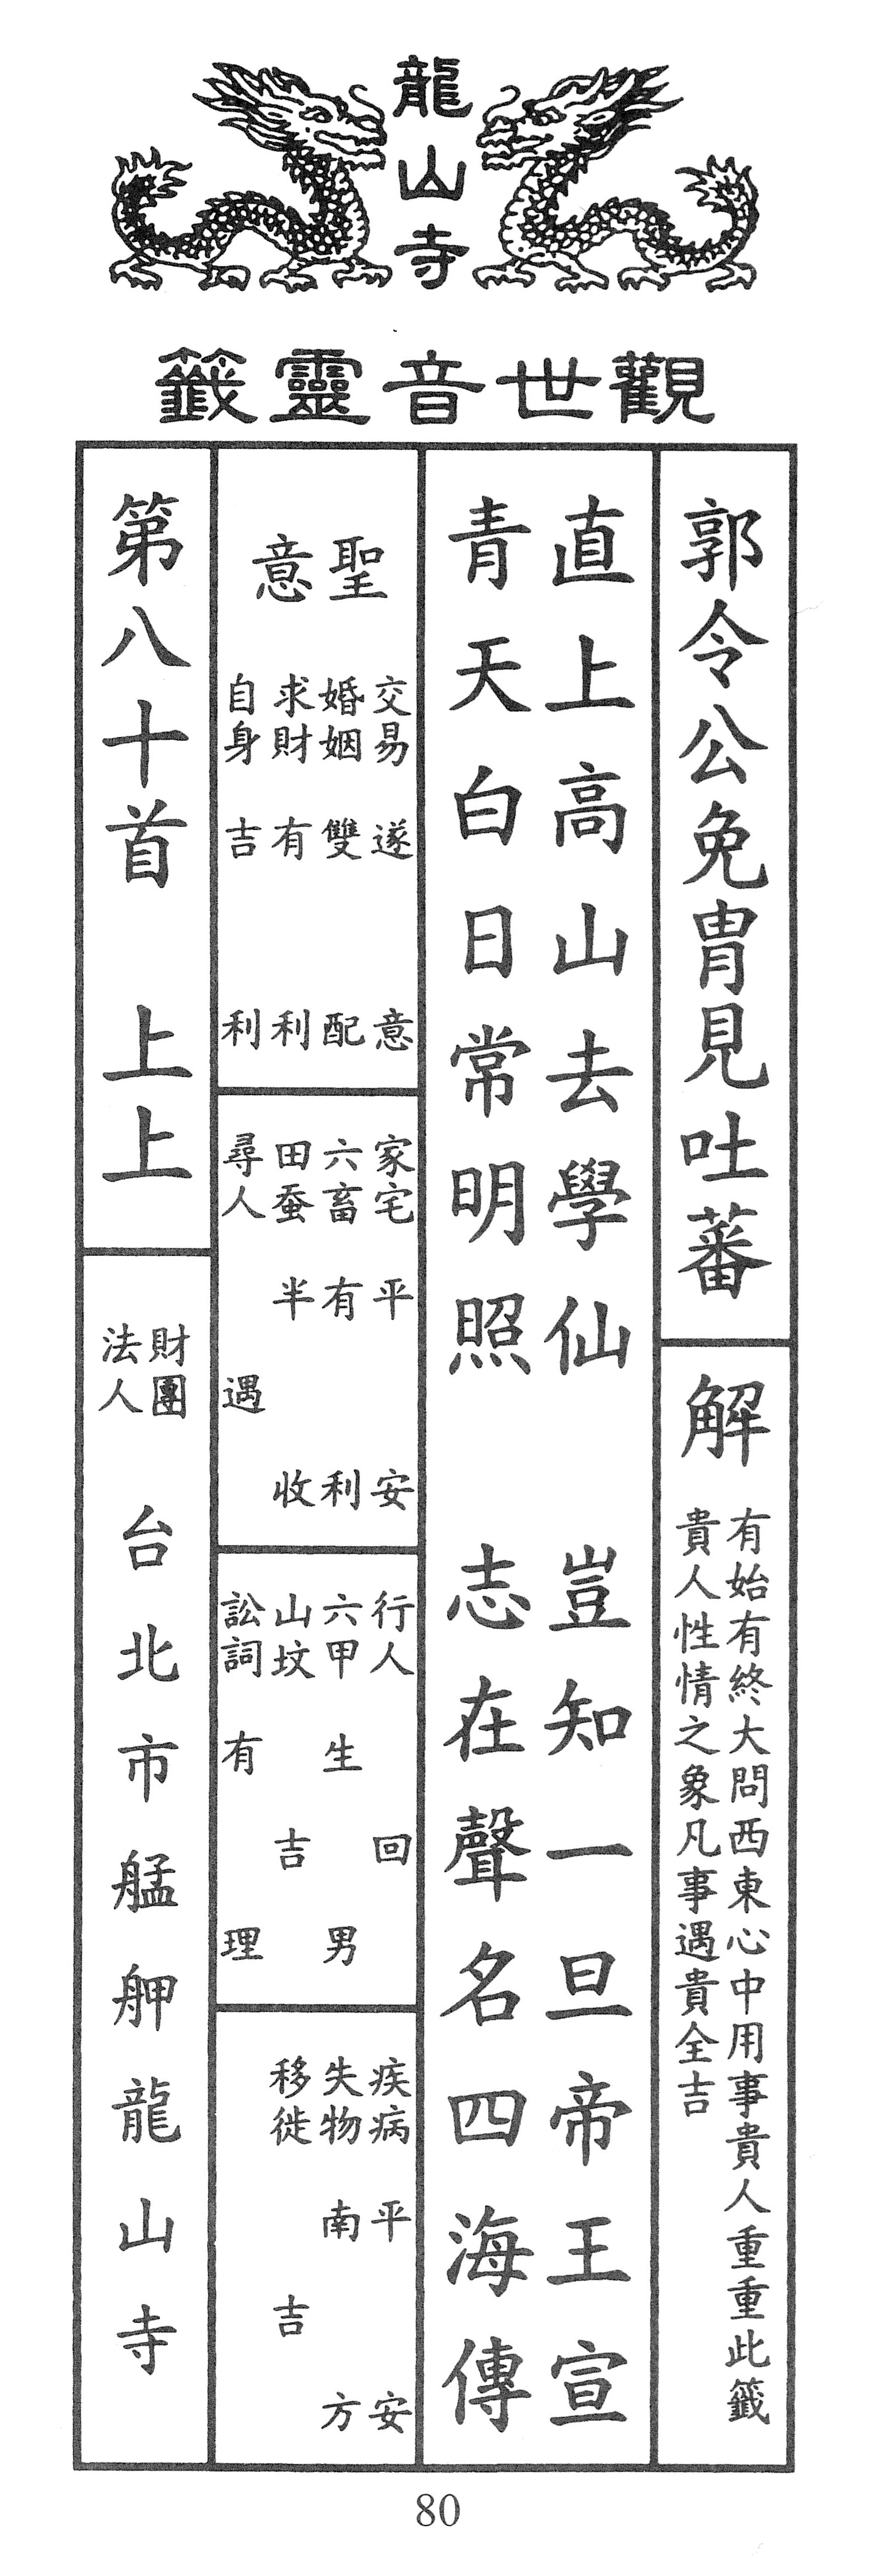 龍山寺
觀世音靈籤
郭令公免胄見吐蕃
解
有始有終大問西東心中用事貴人重重此籤
貴人性情之象凡事遇貴全吉
直上高山去學仙 豈知一旦帝王宣
青天白日常明照 志在聲名四海傳
聖意
交易 遂意
婚姻 雙配
求財 有利
自身 吉利
家宅 平安
六畜 有利
田蚕 半收
尋人 遇
行人 回
六甲 生男
山坟 吉
訟詞 有理
疾病 平安
失物 南方
移徙 吉
第八十首 上上
財團法人
台北市艋舺龍山寺
80